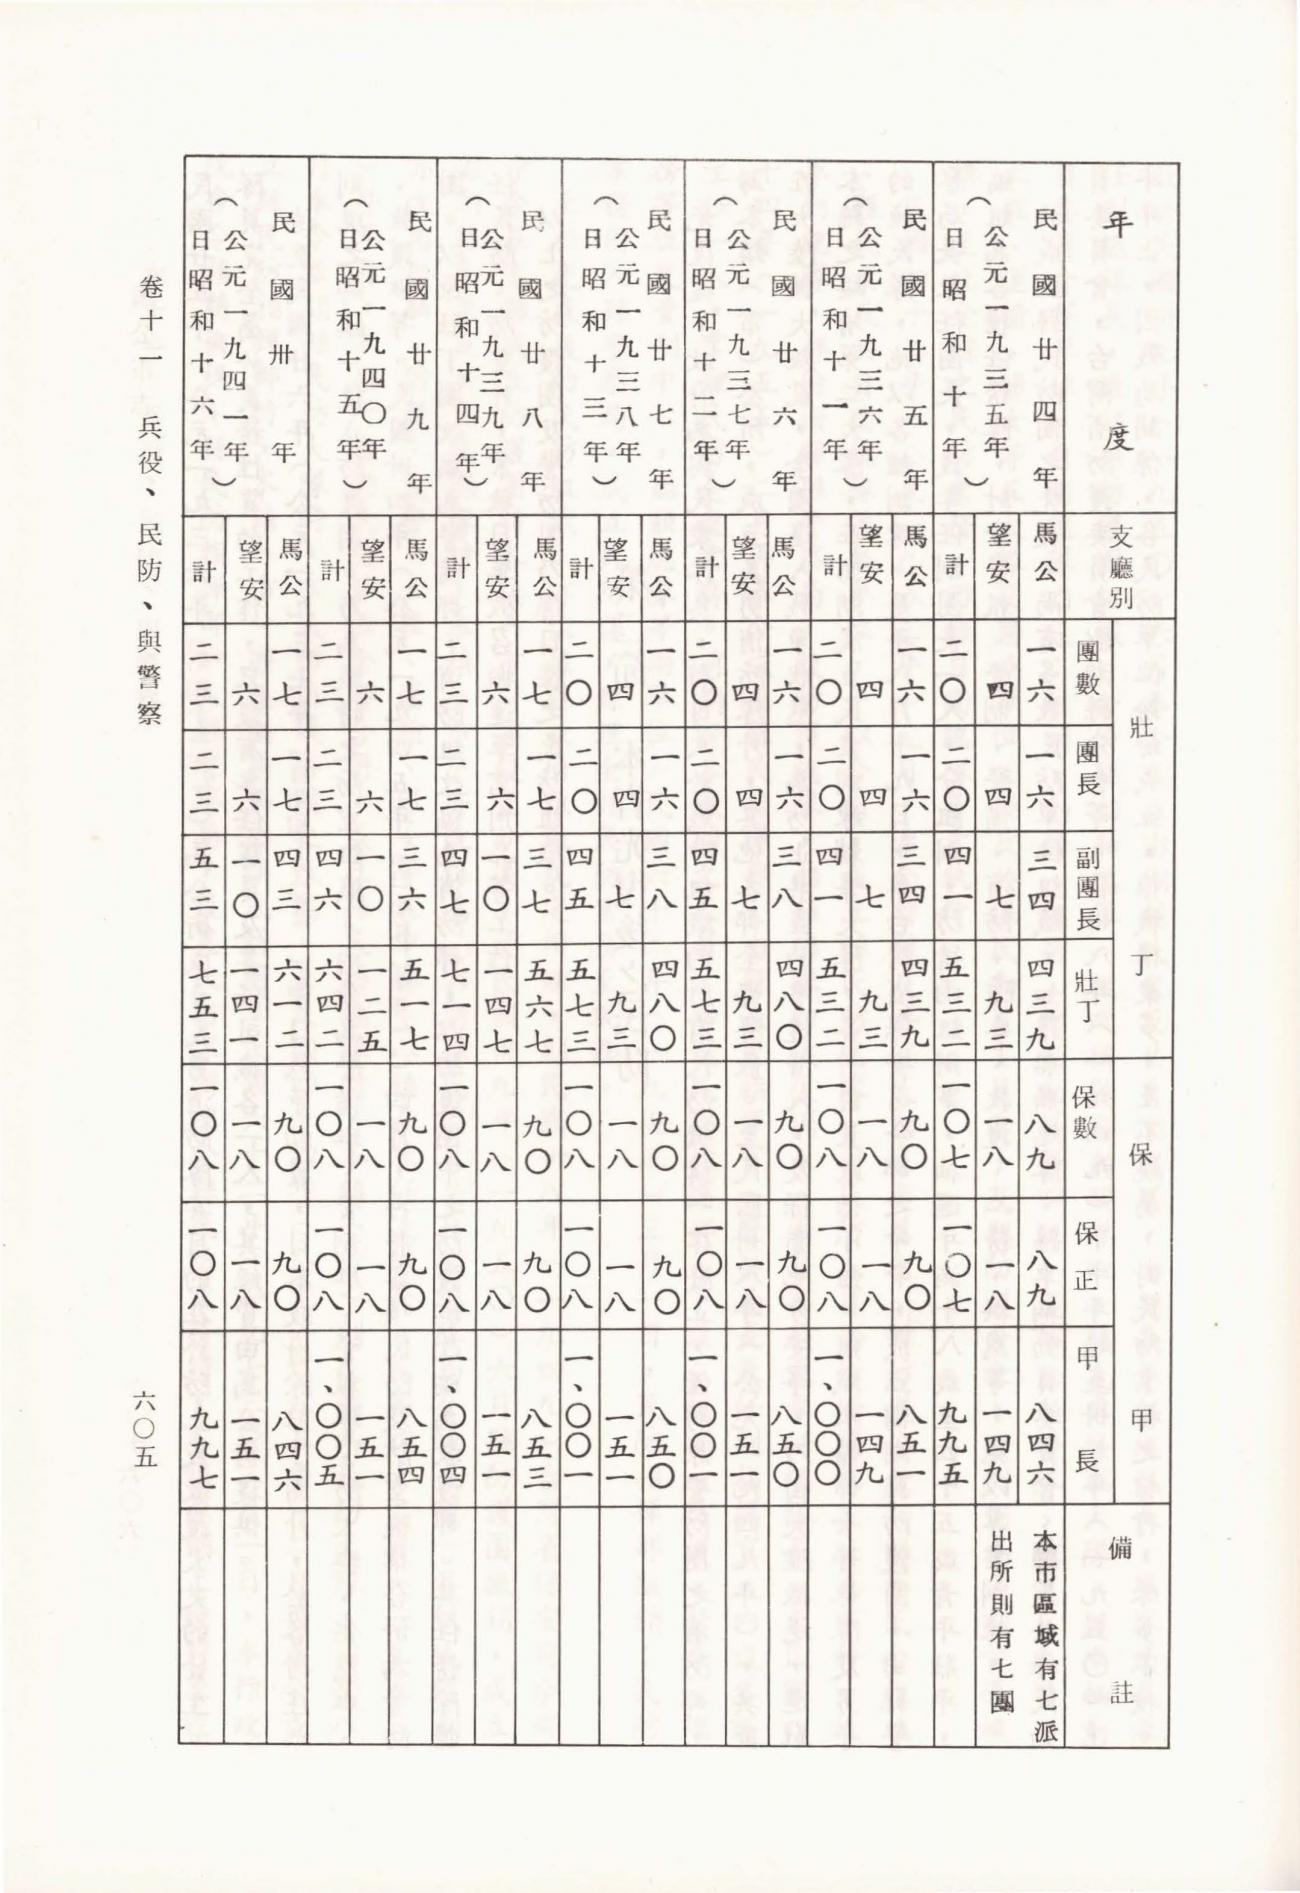 年度 支廳別 壯丁 保甲 備註
團數 團長 副團長 壯丁 保數 保正 甲長
民國廿四年 馬公 一六 一六 三四 四三九 八九 八九 八四六 本市區域有七派
（公元一九三五年 望安 四 四 七 九三 一八 一八 一四九 出所則有七團
日昭和十年） 計 二〇 二〇 四一 五三二 一〇七 一〇七 九九五
民國廿五年 馬公 一六 一六 三四 四三九 九〇 九〇 八五一
（公元一九三六年 望安 四 四 七 九三 一八 一八 一四九
日昭和十一年） 計 二〇 二〇 四一 五三二 一〇八 一〇八 一、〇〇〇
民國廿六年 馬公 一六 一六 三八 四八〇 九〇 九〇 八五〇
（公元一九三七年 望安 四 四 七 九三 一八 一八 一五一
日昭和十二年） 計 二〇 二〇 四五 五七三 一〇八 一〇八 一、〇〇一
民國廿七年 馬公 一六 一六 三八 四八〇 九〇 九〇 八五〇
（公元一九三八年 望安 四 四 七 九三 一八 一八 一五一
日昭和十三年） 計 二〇 二〇 四五 五七三 一〇八 一〇八 一、〇〇一
民國廿八年 馬公 一七 一七 三七 五六七 九〇 九〇 八五三
（公元一九三九年 望安 六 六 一〇 一四七 一八 一八 一五一
日昭和十四年） 計 二三 二三 四七 七一四 一〇八 一〇八 一、〇〇四
民國廿九年 馬公 一七 一七 三六 五一七 九〇 九〇 八五四
（公元一九四〇年 望安 六 六 一〇 一二五 一八 一八 一五一
日昭和十五年） 計 二三 二三 四六 六四二 一〇八 一〇八 一、〇〇五
民國卅年 馬公 一七 一七 四三 六一二 九〇 九〇 八四六
（公元一九四一年 望安 六 六 一〇 一四一 一八 一八 一五一
日昭和十六年） 計 二三 二三 五三 七五三 一〇八 一〇八 九九七
卷十一 兵役、民防、與警察
六〇五